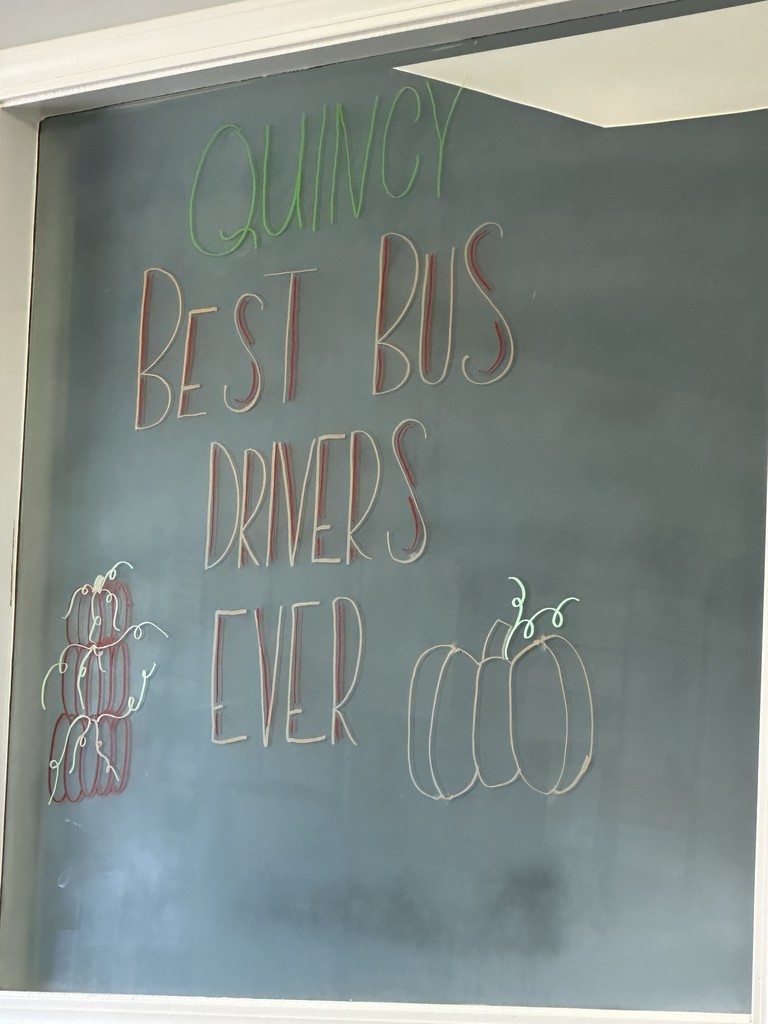 QUINCY
BEST BUS
DRIVERS
EVER